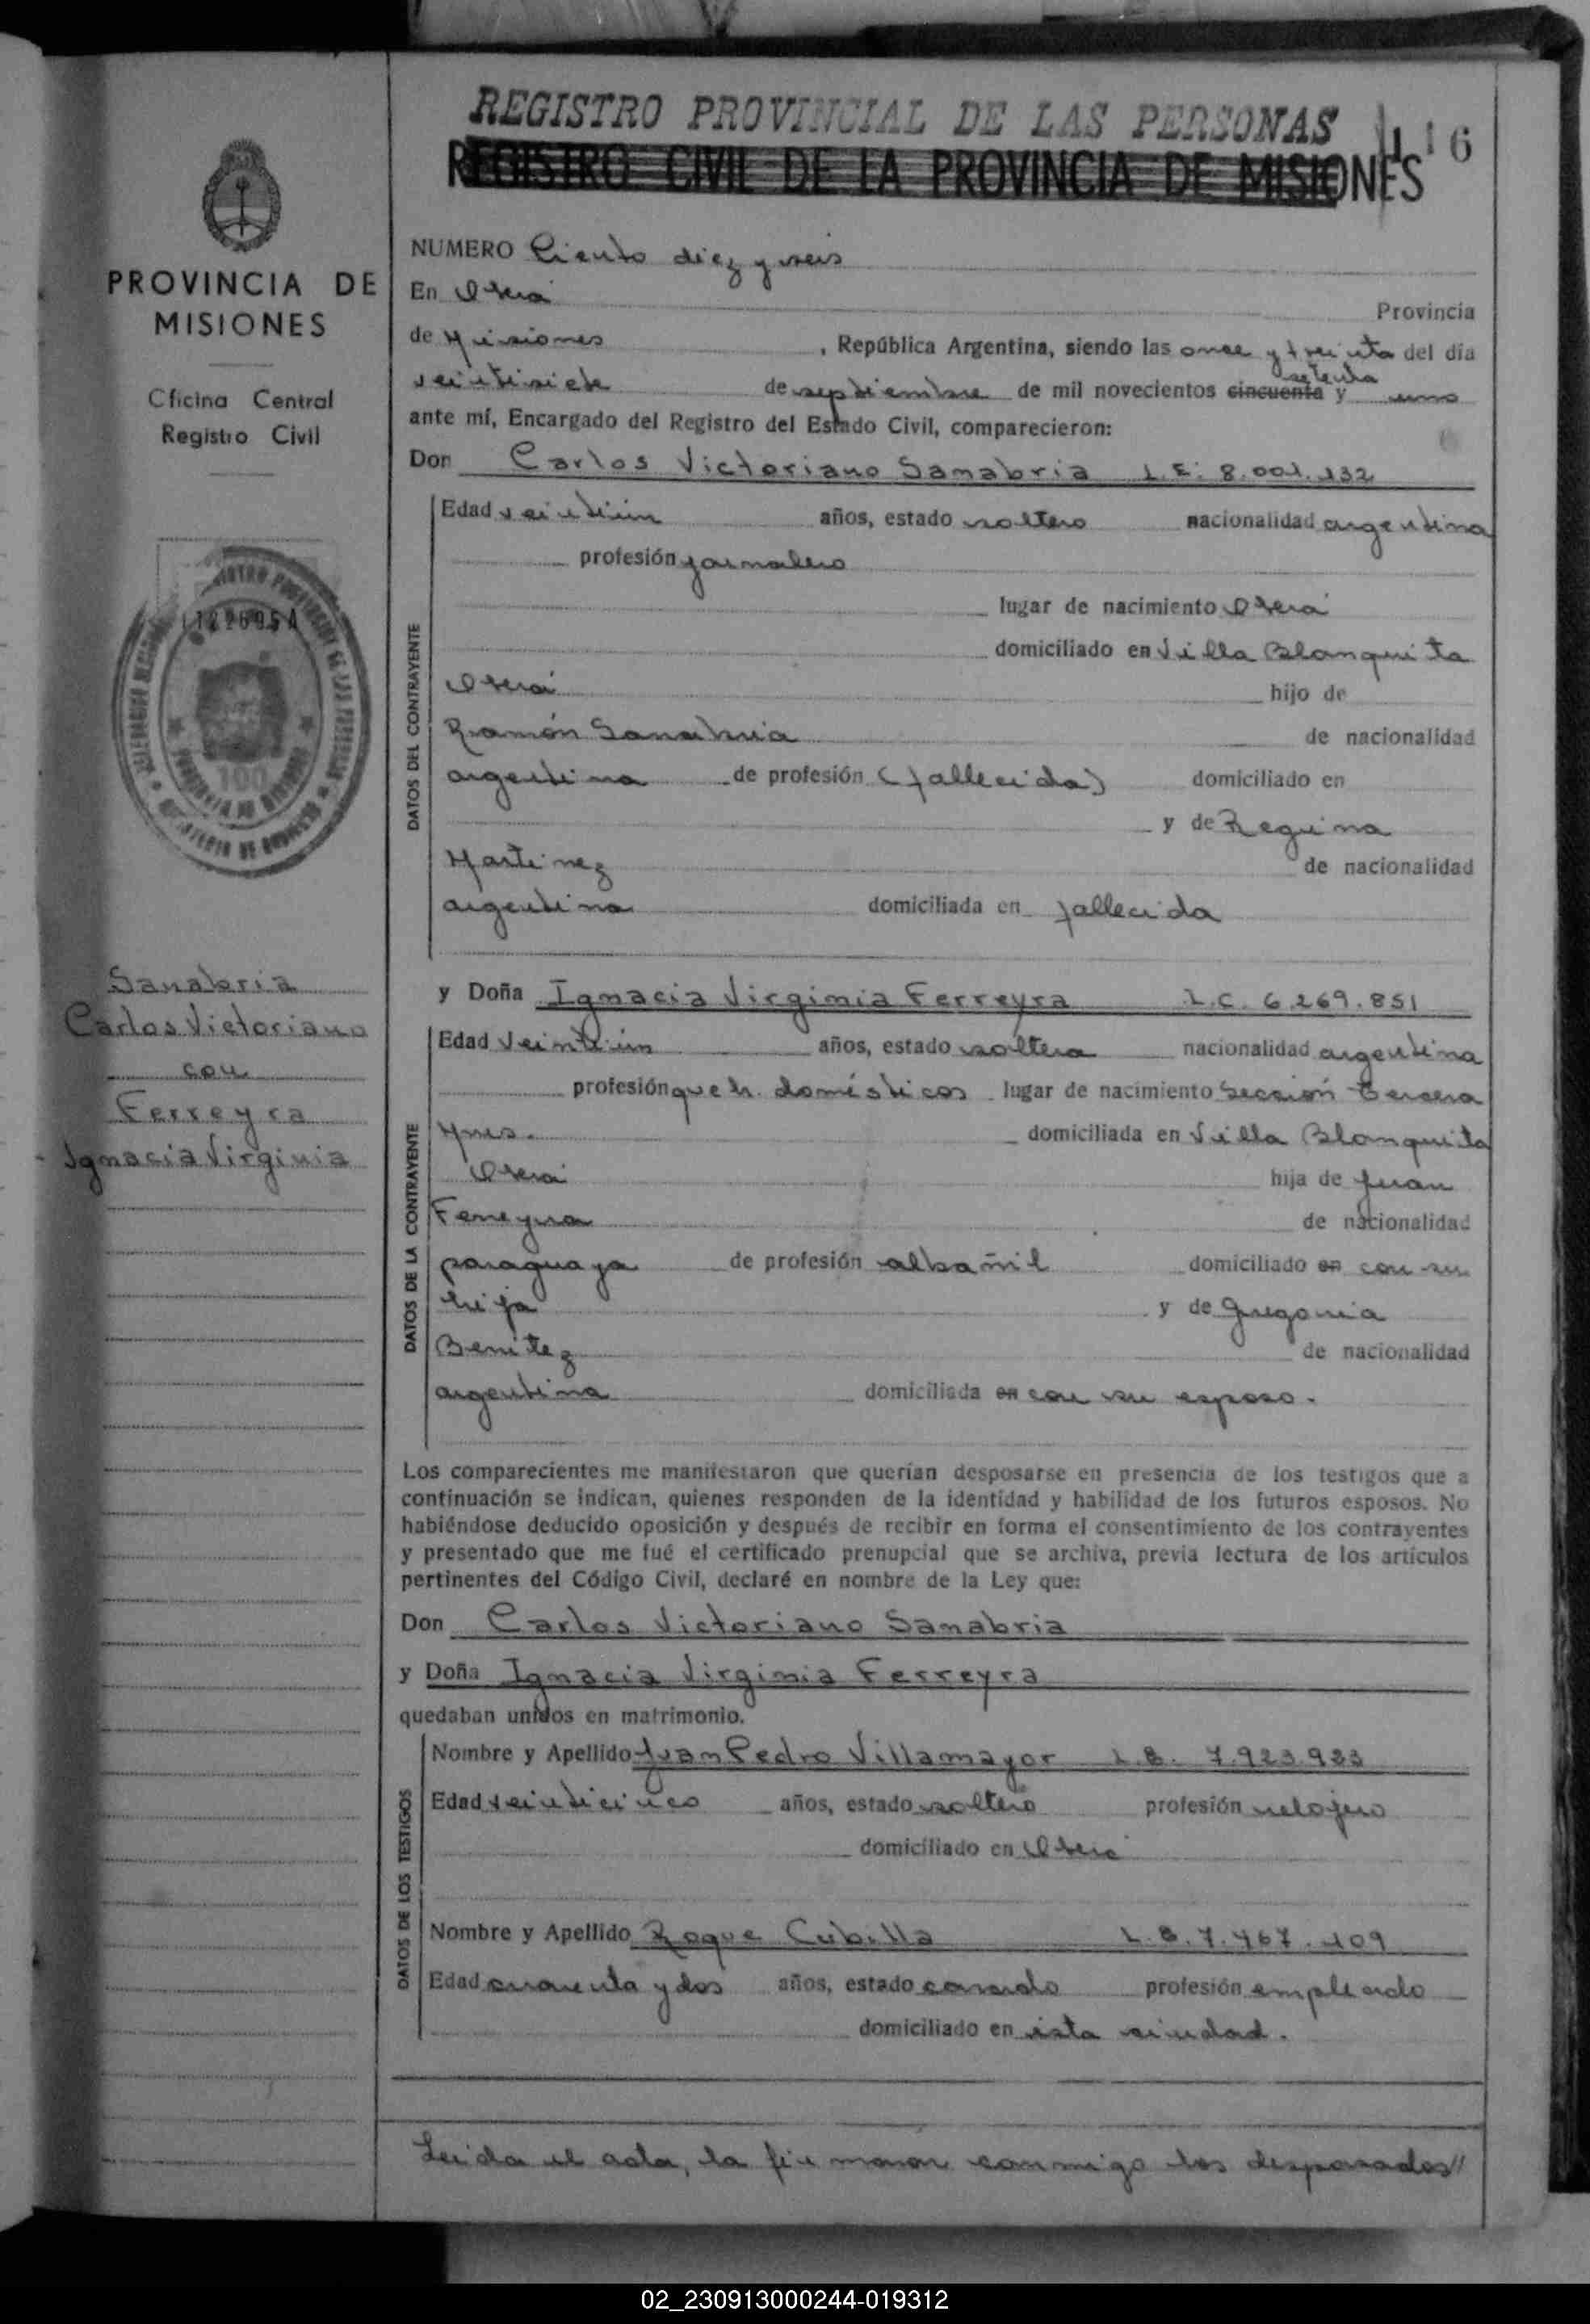 PROVINCIA DE
MISIONES
Oficina Central
Registro Civil
1122695A
100
Sanabria
Carlos Victoriano
con
Ferreyra
Ignacia Virginia
REGISTRO PROVINCIAL DE LAS PERSONAS
116
REGISTRO CIVIL DE LA PROVINCIA DE MISIONES
NUMERO Ciento diez y seis
En Oberá Provincia
de Misiones, República Argentina, siendo las once y treinta del día
setenta
veintisiete de septiembre de mil novecientos cincuenta y uno
ante mí, Encargado del Registro del Estado Civil, comparecieron:
Don Carlos Victoriano Sanabria L.E: 8.001.132
DATOS DEL CONTRAYENTE
Edad veintiún años, estado soltero nacionalidad argentina
profesión jornalero
lugar de nacimiento Oberá
domiciliado en Villa Blanquita
Oberá hijo de
Ramón Sanabria de nacionalidad
argentina de profesión (fallecido) domiciliado en
y de Regina
Martinez de nacionalidad
argentina domiciliada en fallecida
y Doña Ignacia Virginia Ferreyra L.C. 6.269.851
DATOS DE LA CONTRAYENTE
Edad veintiún años, estado soltera nacionalidad argentina
profesión queh. domésticos lugar de nacimiento Sección tercera
Mnes. domiciliada en Villa Blanquita
Oberá hija de Juan
Ferreyra de nacionalidad
paraguaya de profesión albañil domiciliado en con su
hija y de Gregoria
Benitez de nacionalidad
argentina domiciliada en con su esposo.
Los comparecientes me manifestaron que querían desposarse en presencia de los testigos que a
continuación se indican, quienes responden de la identidad y habilidad de los futuros esposos. No
habiéndose deducido oposición y después de recibir en forma el consentimiento de los contrayentes
y presentado que me fué el certificado prenupcial que se archiva, previa lectura de los artículos
pertinentes del Código Civil, declaré en nombre de la Ley que:
Don Carlos Victoriano Sanabria
y Doña Ignacia Virginia Ferreyra
quedaban unidos en matrimonio.
DATOS DE LOS TESTIGOS
Nombre y Apellido Juan Pedro Villamayor L.E. 7.923.933
Edad veinticinco años, estado soltero profesión relojero
domiciliado en Oberá
Nombre y Apellido Roque Cubilla L.E. 7.467.109
Edad cuarenta y dos años, estado casado profesión empleado
domiciliado en ésta ciudad.
Leida el acta, la firmaron conmigo los desposados//
02_230913000244-019312